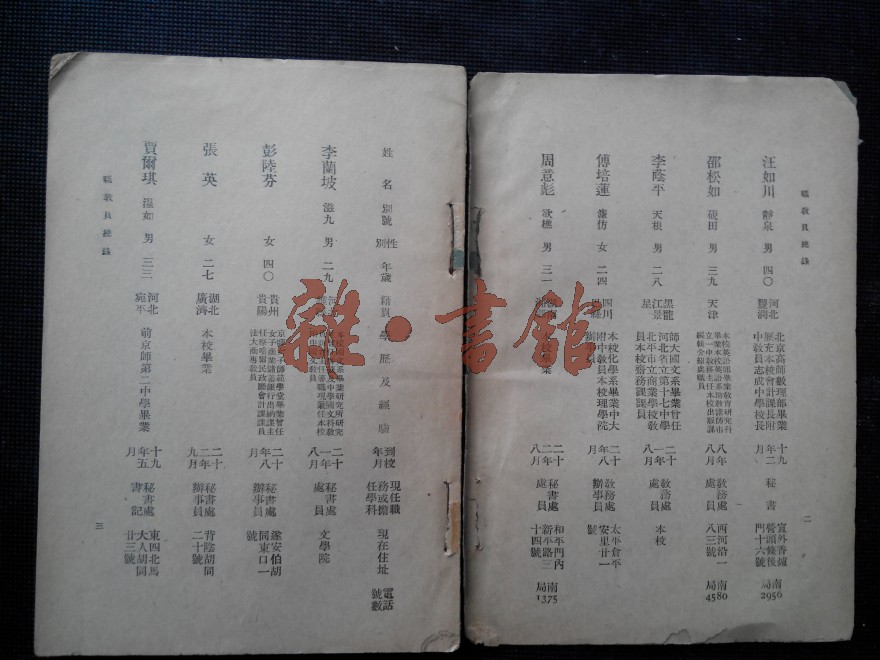 職教員總錄
汪如川 靜泉 男 四〇 河北豐潤 北京高師數理部畢業歷充本校會計課長附中教員志成中學校長 十九年二月 秘書 宣外香爐營頭條後門十六號 南局2956
邵松如 硯田 男 三九 天津 八年八月 教務處處員 西河沿一八三號 南局4580
李蔭平 天根 男 二八 黑龍江景星 師大國文系畢業曾任河北省立第十七中學北平市立商業學校教員本校齋務課課員 二十一年八月 教務處處員 本校
傅培蓮 女 二四 四川 本校化學系畢業中大附中教員本校理學院 教務處辦事員 太平倉平安里廿一號
周意彪 欲樵 男 三一 業 二十二年八月 秘書處處員 和平門內新平路三十四號 南局1375
二
姓名 別號 性別 年歲 籍貫 學歷及經驗 到校年月 現任職務或擔任學科 現在住址 電話號數
李蘭坡 滋九 男 二九 河 二十一年八月 秘書處處員 文學院
彭陸芬 女 四〇 貴州貴陽 二十年八月 秘書處辦事員 遂安伯胡同東口一號
張英 女 二七 湖北廣濟 本校畢業 二十二年九月 秘書處辦事員 背陰胡同二十號
賈爾琪 溫如 男 三三 河北宛平 前京師第二中學畢業 十九年五月 秘書處書記 東四北馬大人胡同廿三號
職教員總錄
三
雜·書館